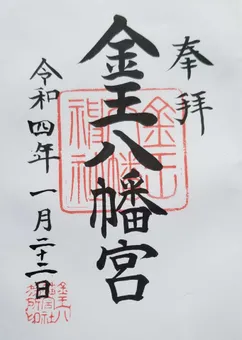 奉拝
金王八幡宮
令和四年一月二十二日
金王
八幡
神社
金王八
幡宮社
務所印